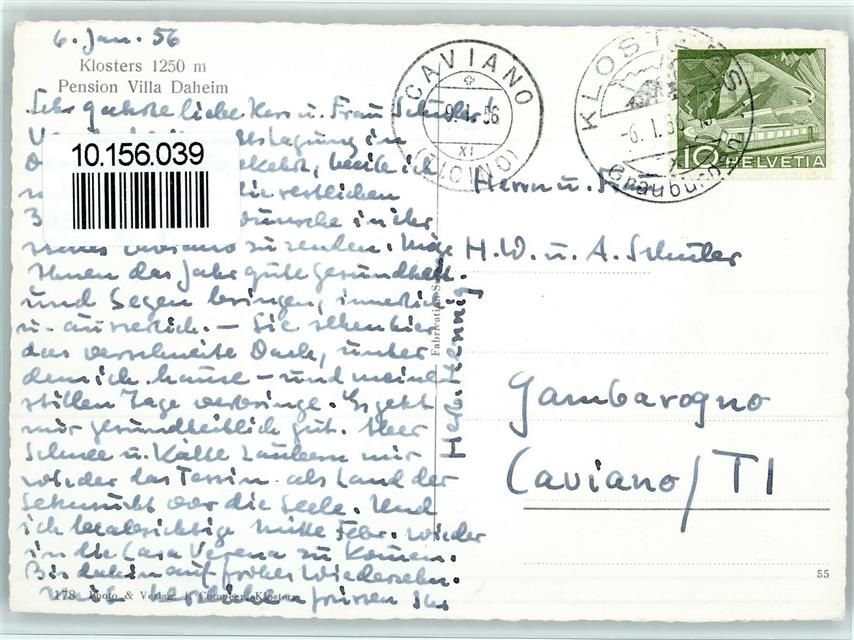 6. Jan. 56
Klosters 1250 m
Pension Villa Daheim
Sehr geehrte liebe Herr u. Frau Schuler
in
10.156.039
ich
restlichen
wünsche in Ihr
zu senden. Möge
Ihnen das Jahr gute Gesundheit
und Segen bringen, innerlich
u. äusserlich. – Sie sehen hier
das verschneite Dach, unter
dem ich hause – und meine
stillen Tage verbringe. Es geht
mir gesundheitlich gut. Aber
Schnee u. Kälte zaubern mir
wieder das Tessin als Land der
Sehnsucht vor die Seele. Und
ich beabsichtige Mitte Febr. wieder
in die Casa Verena zu kommen.
Bis dahin auf frohes Wiedersehn.
herzlichen Grüssen Ihr
178 Photo & Verlag: J. Klosters
Hennig
Fabrication
CAVIANO
9.I.56
XI
(TICINO)
KLOSTERS
-6.I.56
Graubünden
10 HELVETIA
Herrn u. Frau
H. W. u. A. Schuler
Gambarogno
Caviano/TI
55